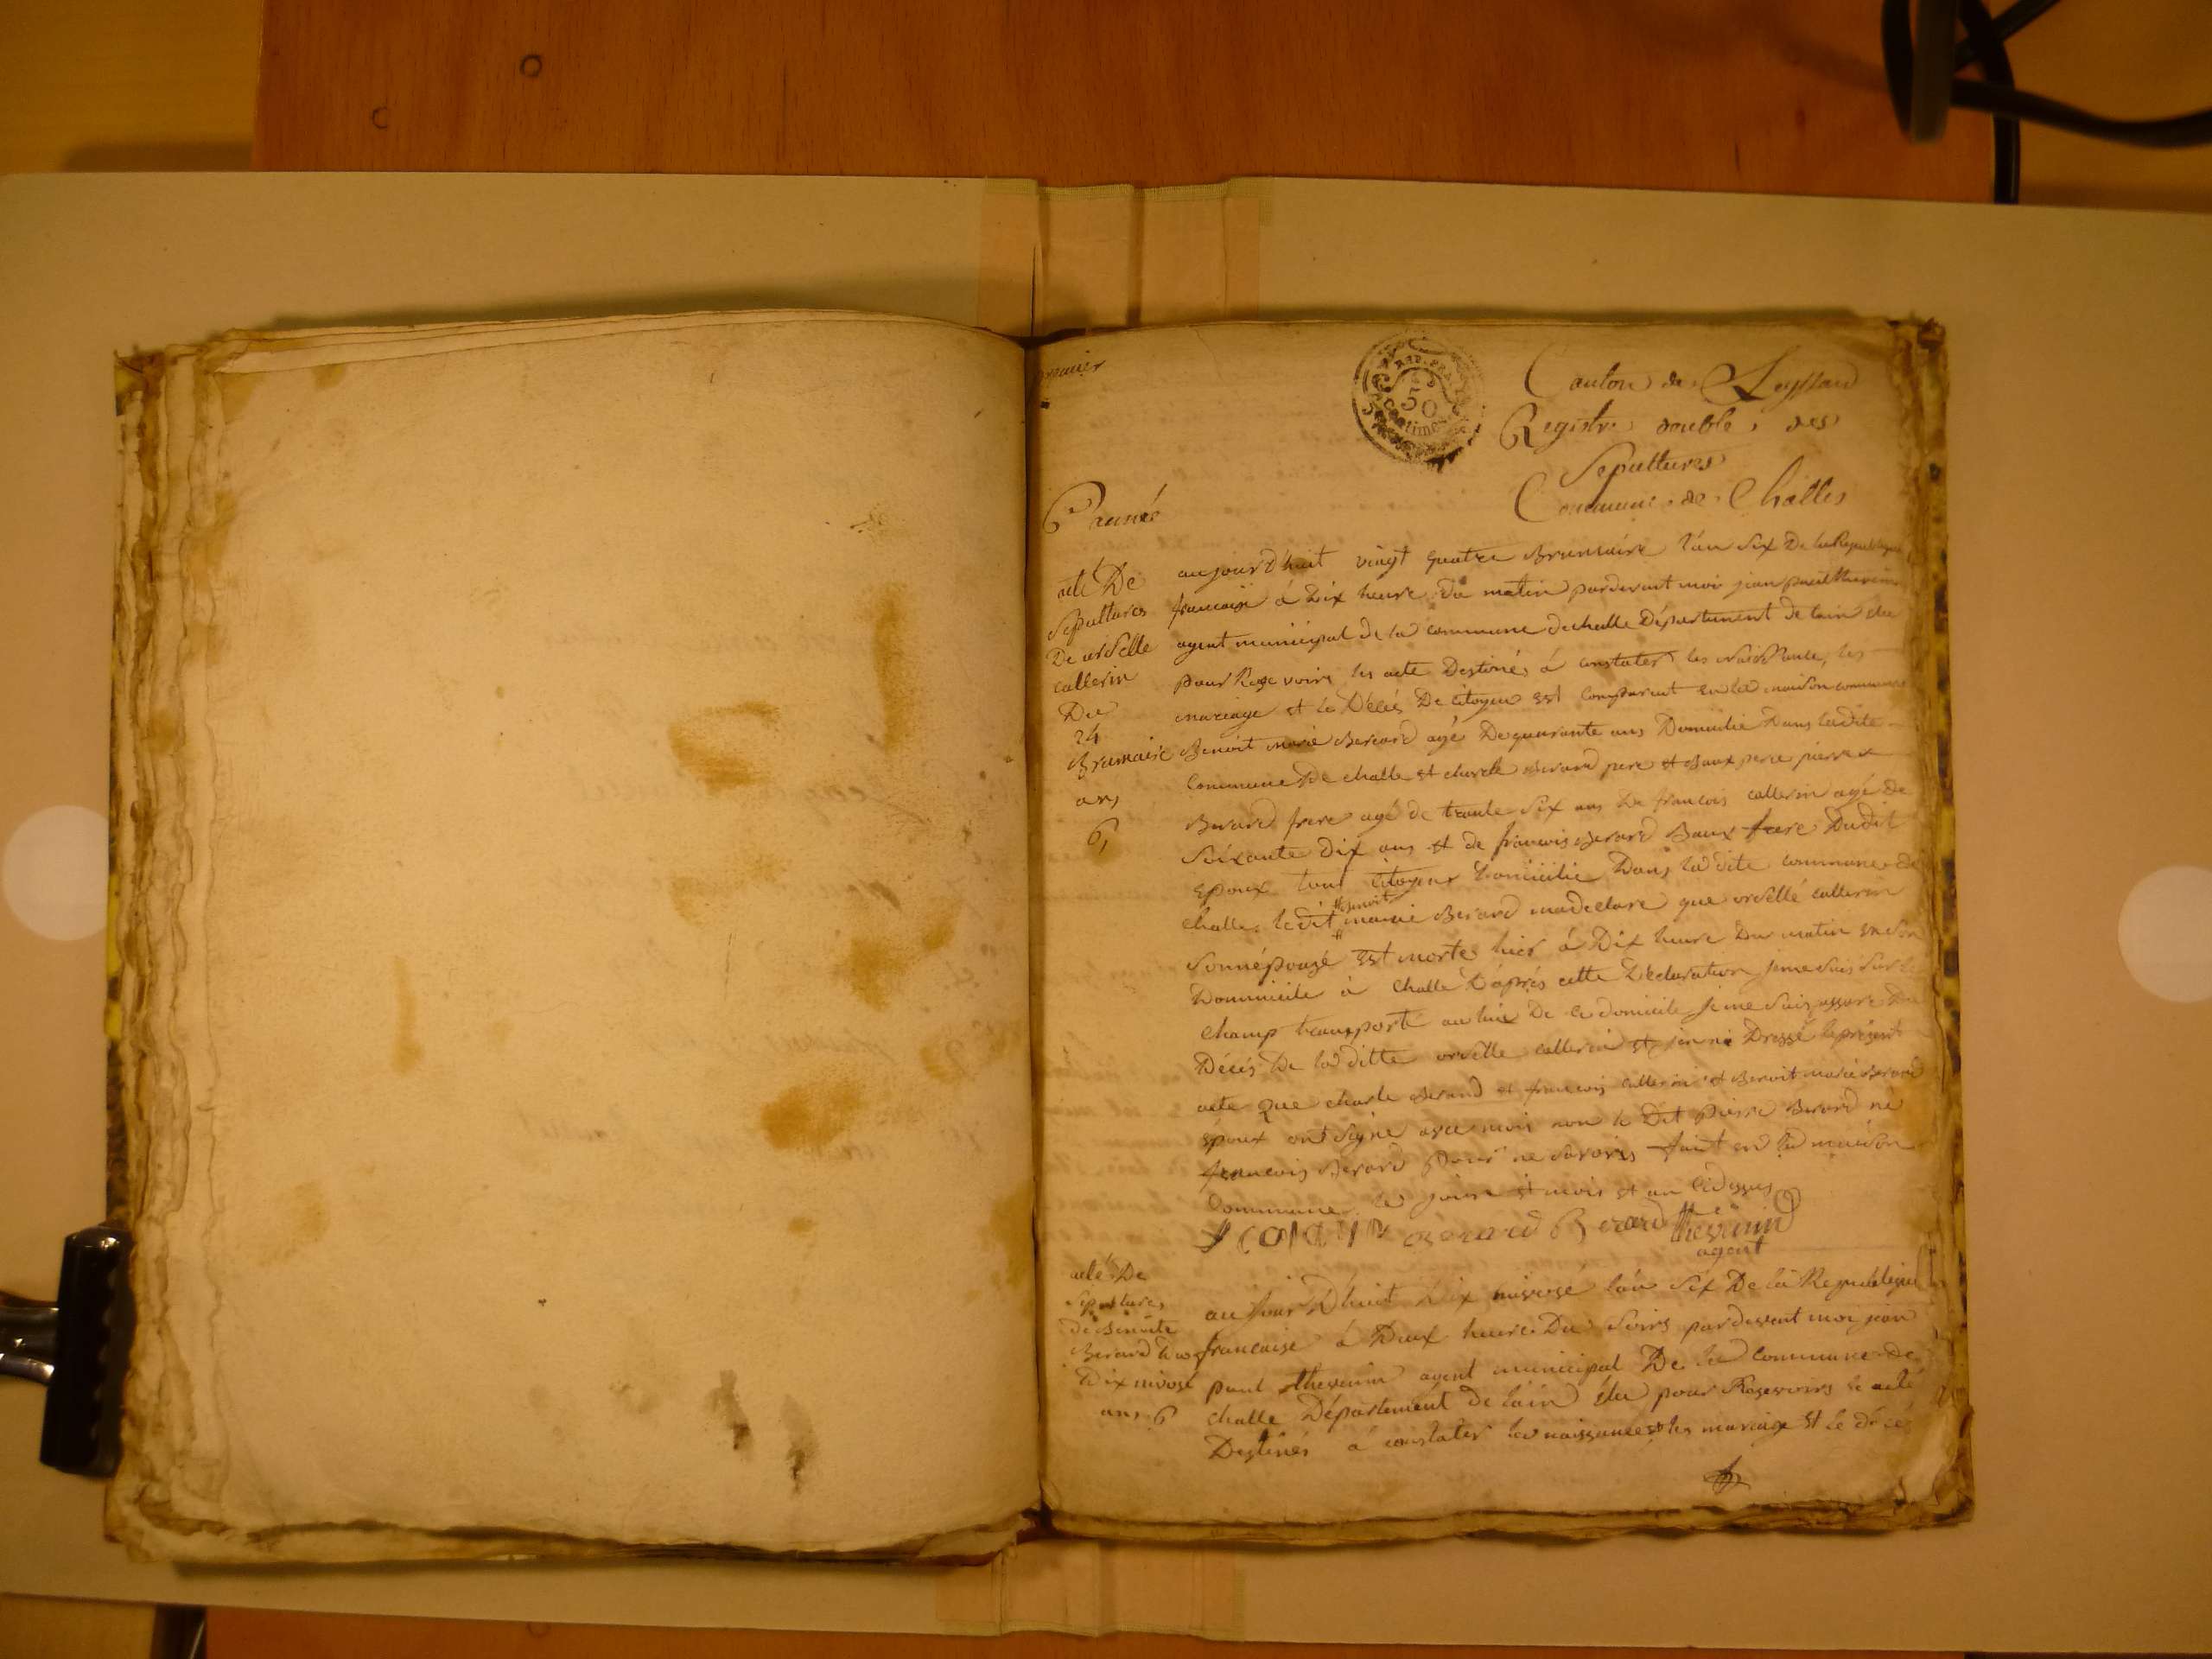 premier
REP. FRA
50
centimes
Canton de Leyssard
Registre double des
Sepultures
Commune de Challes
6e année
acte De
Sepultures
De urselle
callerin
Du
24
Brumaire
ans
6
aujourd'huit vingt quatre Brumaire l'an Six De la Republique
francaise à Dix heure du matin pardevant moi jean paul thevenin
agent municipal de la commune de challe Département de lain elu
pour Rege voirs les acte Destinés à constater les naissance, les
mariage et le Décés De citoyen est comparut en la maison commune
Benoit marie Berard agé De quarante ans Domicilie Dans ladite
Commune De challe et charle Berard pere et Baux pere pierre
Berard frere agé de trante Six ans De francois callerin agé de
Soixante Dix ans et de francois Berard Baux frere Dudit
Epoux tous Citoyens Domicilie Dans la dite commune de
Benoit
challe. ledit marie Berard madeclare que ursellé callerin
Sonnépougé est morte hier à Dix heure Du matin en Son
Dommicile à Challe D'aprés cette Déclaration je me Suis Sur le
Champ transporté au lieu De ce domicile je me Suis assuré Du
Décés De la ditte urselle callerin et j'en ai Dressé le présent
acte Que charle Berard et francois callerin et Benoit marie Berard
époux ont Signé avec moi non le Dit Pierre Berard ne
francois Berard Pour ne Savoirs fait en la maison
Commune le jour et mois et an Cidessus
Berard Berard thevenin
agent
acte De
Sepultures
de Benoite
Berard Du
Dix nivosé
ans 6
aujour D'huit Dix nivosé l'an Six De la Republique
francaise à Deux heure Du Soirs pardevent moi jean
paul thevenin agent municipal De la commune de
challe Département de lain élu pour Rogevoirs le acte
Destinés à constater les naissance et les mariage et le décés